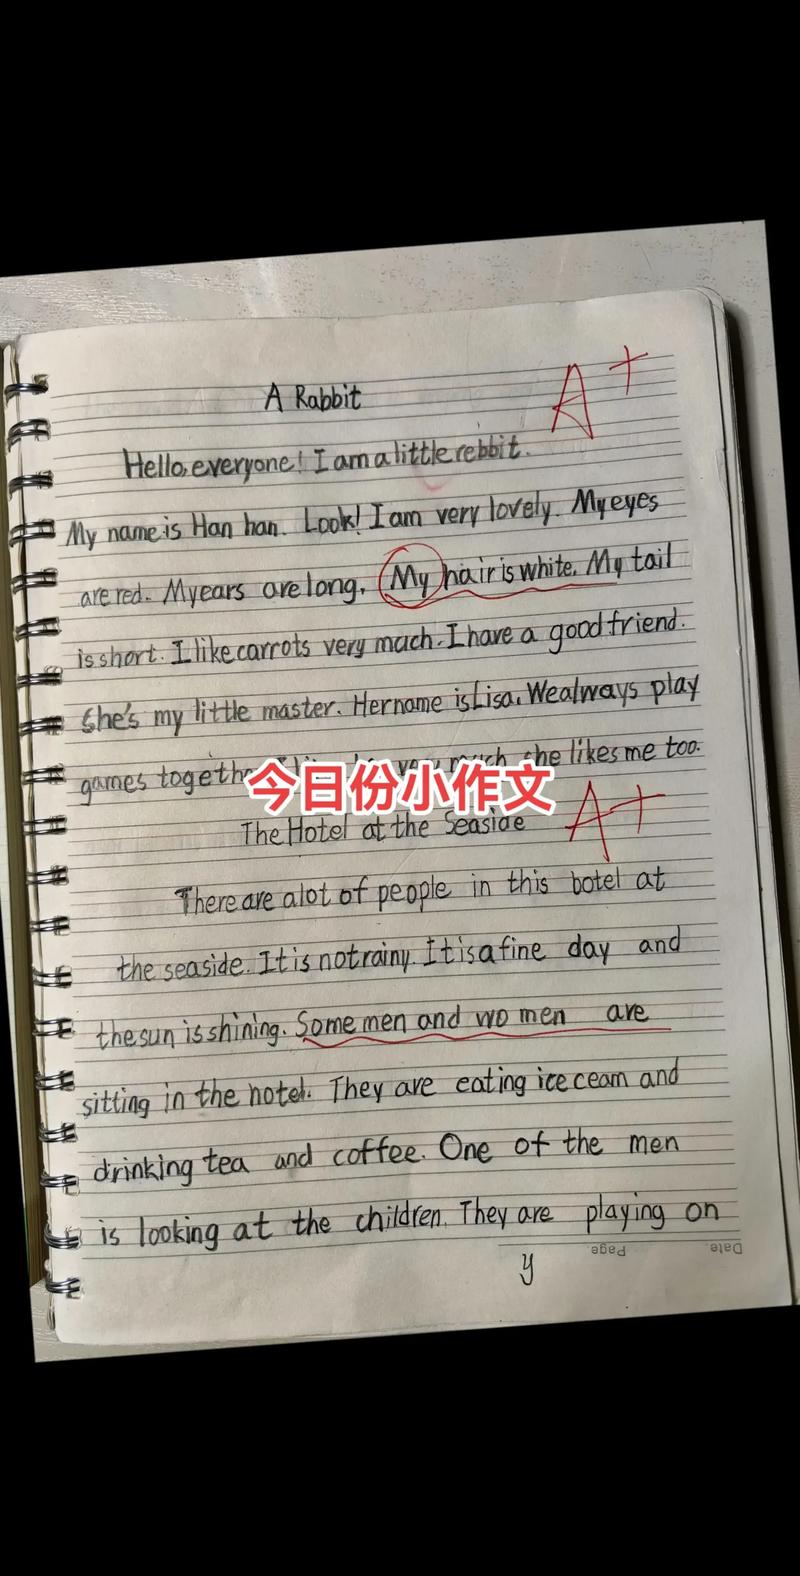 A Rabbit
A+
Hello, everyone! I am a little rebbit.
My name is Han han. Look! I am very lovely. My eyes
are red. My ears are long. My hair is white. My tail
is short. I like carrots very much. I have a good friend.
She's my little master. Her name is Lisa. We always play
games together very much she likes me too.
今日份小作文
The Hotel at the Seaside
A+
There are a lot of people in this botel at
the seaside. It is not rainy. It is a fine day and
the sun is shining. Some men and wo men are
sitting in the hotel. They are eating ice ceam and
drinking tea and coffee. One of the men
is looking at the children. They are playing on
Date
Page
y